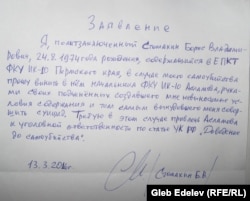 Заявление
Я, политзаключенный Стомахин Борис Владими-
рович, 24.8.1974 года рождения, содержащийся в ЕПКТ
ФКУ ИК-10 Пермского края, в случае моего самоубийства
прошу винить в нем начальника ФКУ ИК-10 Асламова, рука-
ми своих подчиненных создавшего мне невыносимые ус-
ловия содержания и тем самым вынудившего меня совер-
шить суицид. Требую в этом случае привлечь Асламова
к уголовной ответственности по статье УК РФ "Доведение
до самоубийства".
13.3.2016г.
Стомахин Б.В.
Gleb Edelev (RFE/RL)